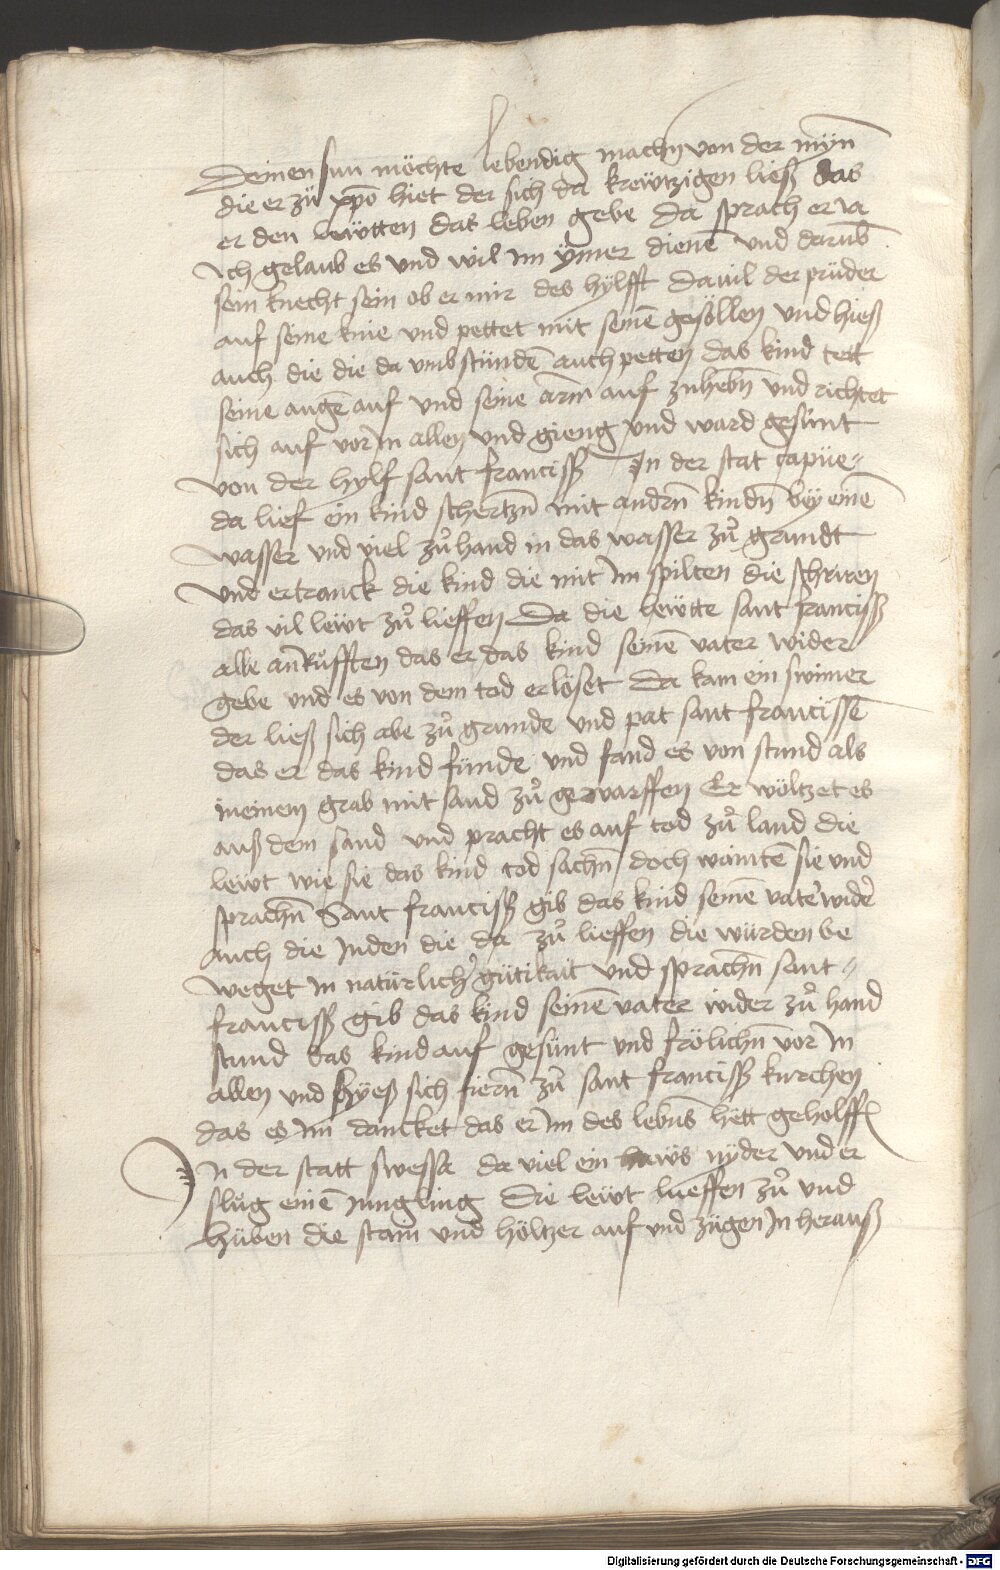 Deinen sun möchte lebendig machn von der myn̄
die er zů xpō hiet der sich da krewtzigen ließ das
er den lewtten das leben gebe Da sprach er Ja
Ich gelaub es und wil im ymer dienē und darūb
sein knecht sein ob er mir des hylfft Da vil der prüder
auf seine knie und pettet mit seinē gesöllen und hieß
auch die die da umb stündē auch petten das kind tett
seine augē auf und seine arm auf zuhebn̄ und richtet
sich auf vor In allen und gieng und ward gesunt
von der hylf sant franciss In der stat capue
da lief ein kind schertzn̄ mit andrn̄ kindn̄ bey einē
wasser und viel zů hand in das wasser zů grundt
und ertranck die kind die mit Im spilten die schriren
das vil lewt zů lieffen Da die lewtte sant franciss
alle anrůfften das er das kind seinē vater wider
gebe und es von dem tod erlöset Da kam ein swimer
der ließ sich abe zů grunde und pat sant francissē
das er das kind fünde und fand es von stund als
in einem grab mit sand zů geworffen Er wöltzet es
auß dem sand und pracht es auf tod zů land die
lewt wie sie das kind tod sachn̄ doch waintē sie und
sprachn̄ Sant franciss gib das kind seinē vatr̄ widr̄
Auch die Juden die da zů lieffen die würden be
weget in natürlichr̄ gütikait und sprachn̄ sant
franciss gib das kind seinē vater wider zů hand
stund das kind auf gesunt und frölichn̄ vor In
allen und hyeß sich fiern̄ zů sant franciss kirchen
das es Im dancket das er Im des lebns hett geholffn̄
In der statt swessa da viel ein haws nyder und er
slůg einē Jungling Die lewt lueffen zů und
hüben die stain und höltzer auf und zügen In herauß
Digitalisierung gefördert durch die Deutsche Forschungsgemeinschaft - DFG